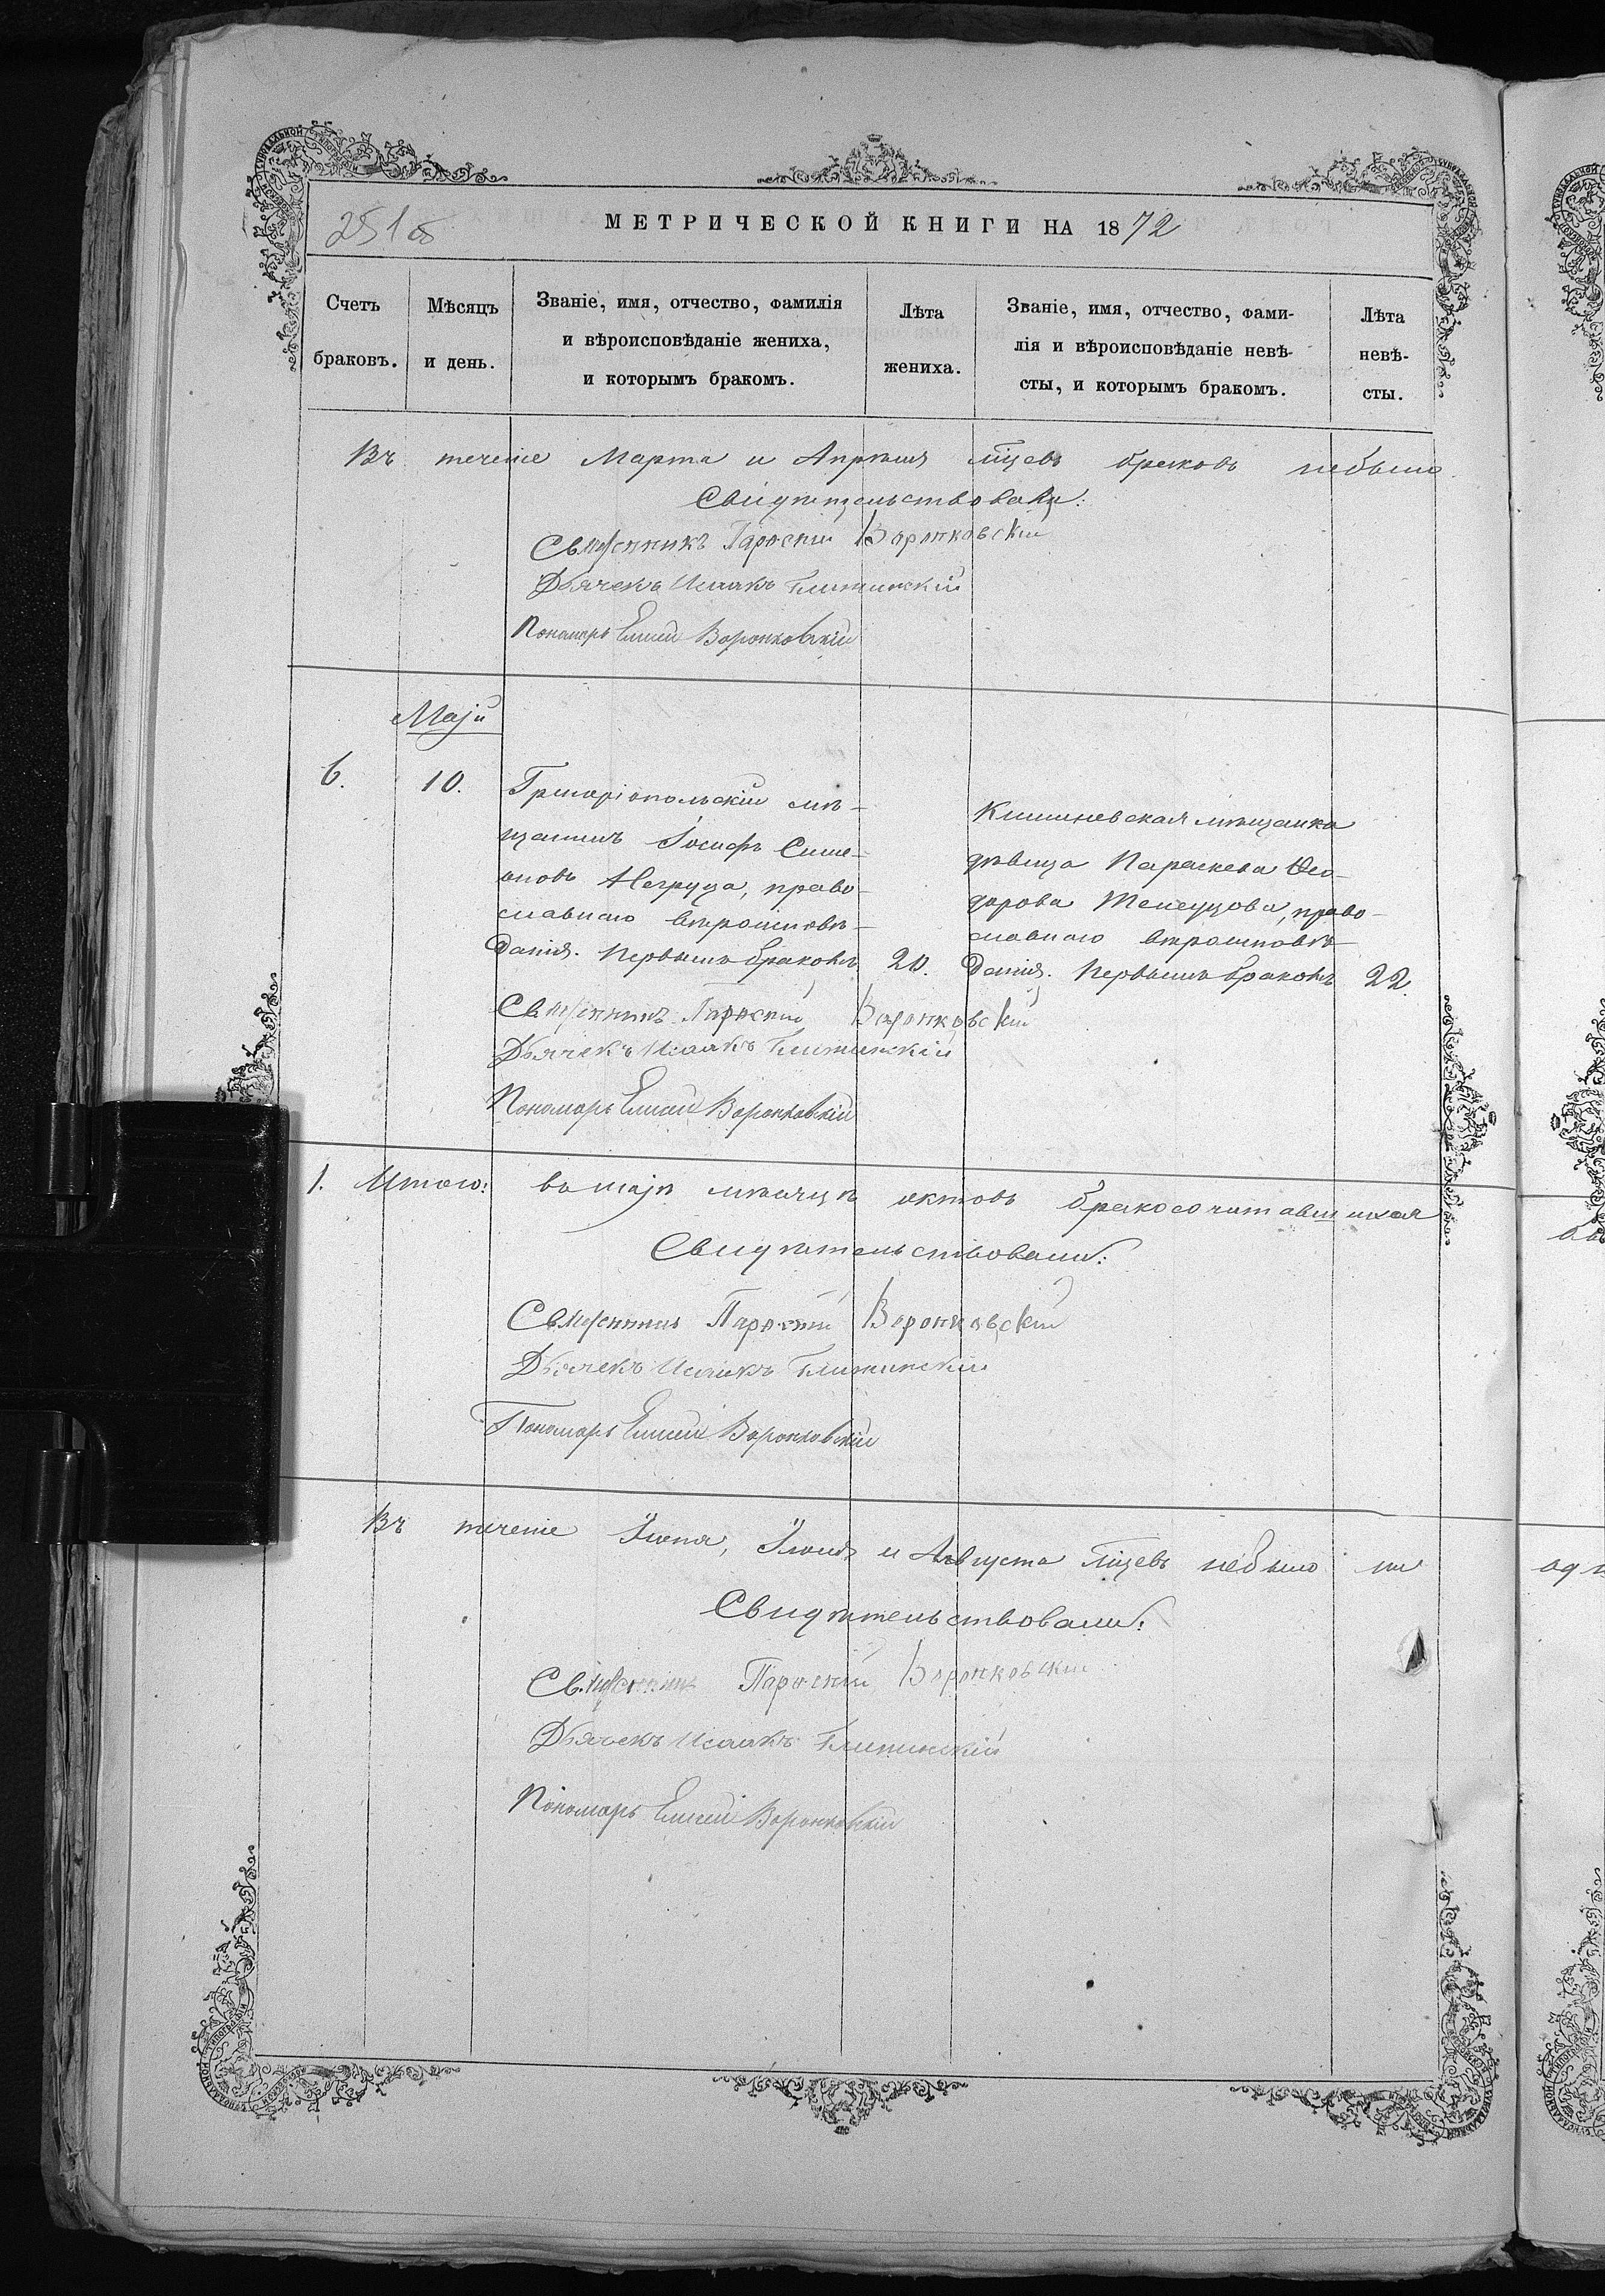 251 об
МЕТРИЧЕСКОЙ КНИГИ НА 1872
Счетъ браковъ.
Мѣсяцъ и день.
Званіе, имя, отчество, фамилія
и вѣроисповѣданіе жениха,
и которымъ бракомъ.
Лѣта
жениха.
Званіе, имя, отчество, фами-
лія и вѣроисповѣданіе невѣ-
сты, и которымъ бракомъ.
Лѣта
невѣ-
сты.
Въ теченіе Марта и Апрѣля мцевъ браковъ небыло
Свидѣтельствовали:
Священникъ Воронковскій
Дьячекъ Исаакъ
Пономарь Елисей Воронковскій
Маій
6.
10.
Григоріопольскій мѣ-
щанинъ Іосифъ Симе-
оновъ Негруца, право-
славнаго вѣроисповѣ-
данія. Первымъ бракомъ
20.
Кишиневская мѣщанка
дѣвица Параскева Ѳео-
дорова право-
славнаго вѣроисповѣ-
данія. Первымъ бракомъ
22.
Священникъ Воронковскій
Дьячекъ Исаакъ
Пономарь Елисей Воронковскій
1. Итого: въ маіѣ мѣсяцѣ актовъ бракосочитавшихся
Свидѣтельствовали:
Священникъ Воронковскій
Дьячекъ Исаакъ
Пономарь Елисей Воронковскій
Въ теченіе Іюня, Іюля и Августа мцевъ небыло ни
Свидѣтельствовали:
Священникъ Воронковскій
Дьячекъ Исаакъ
Пономарь Елисей Воронковскій